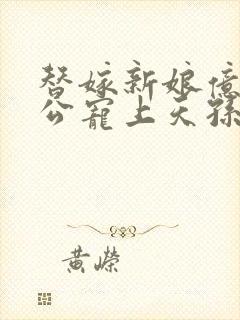 替嫁新娘億
公寵上天孫
黃嶸